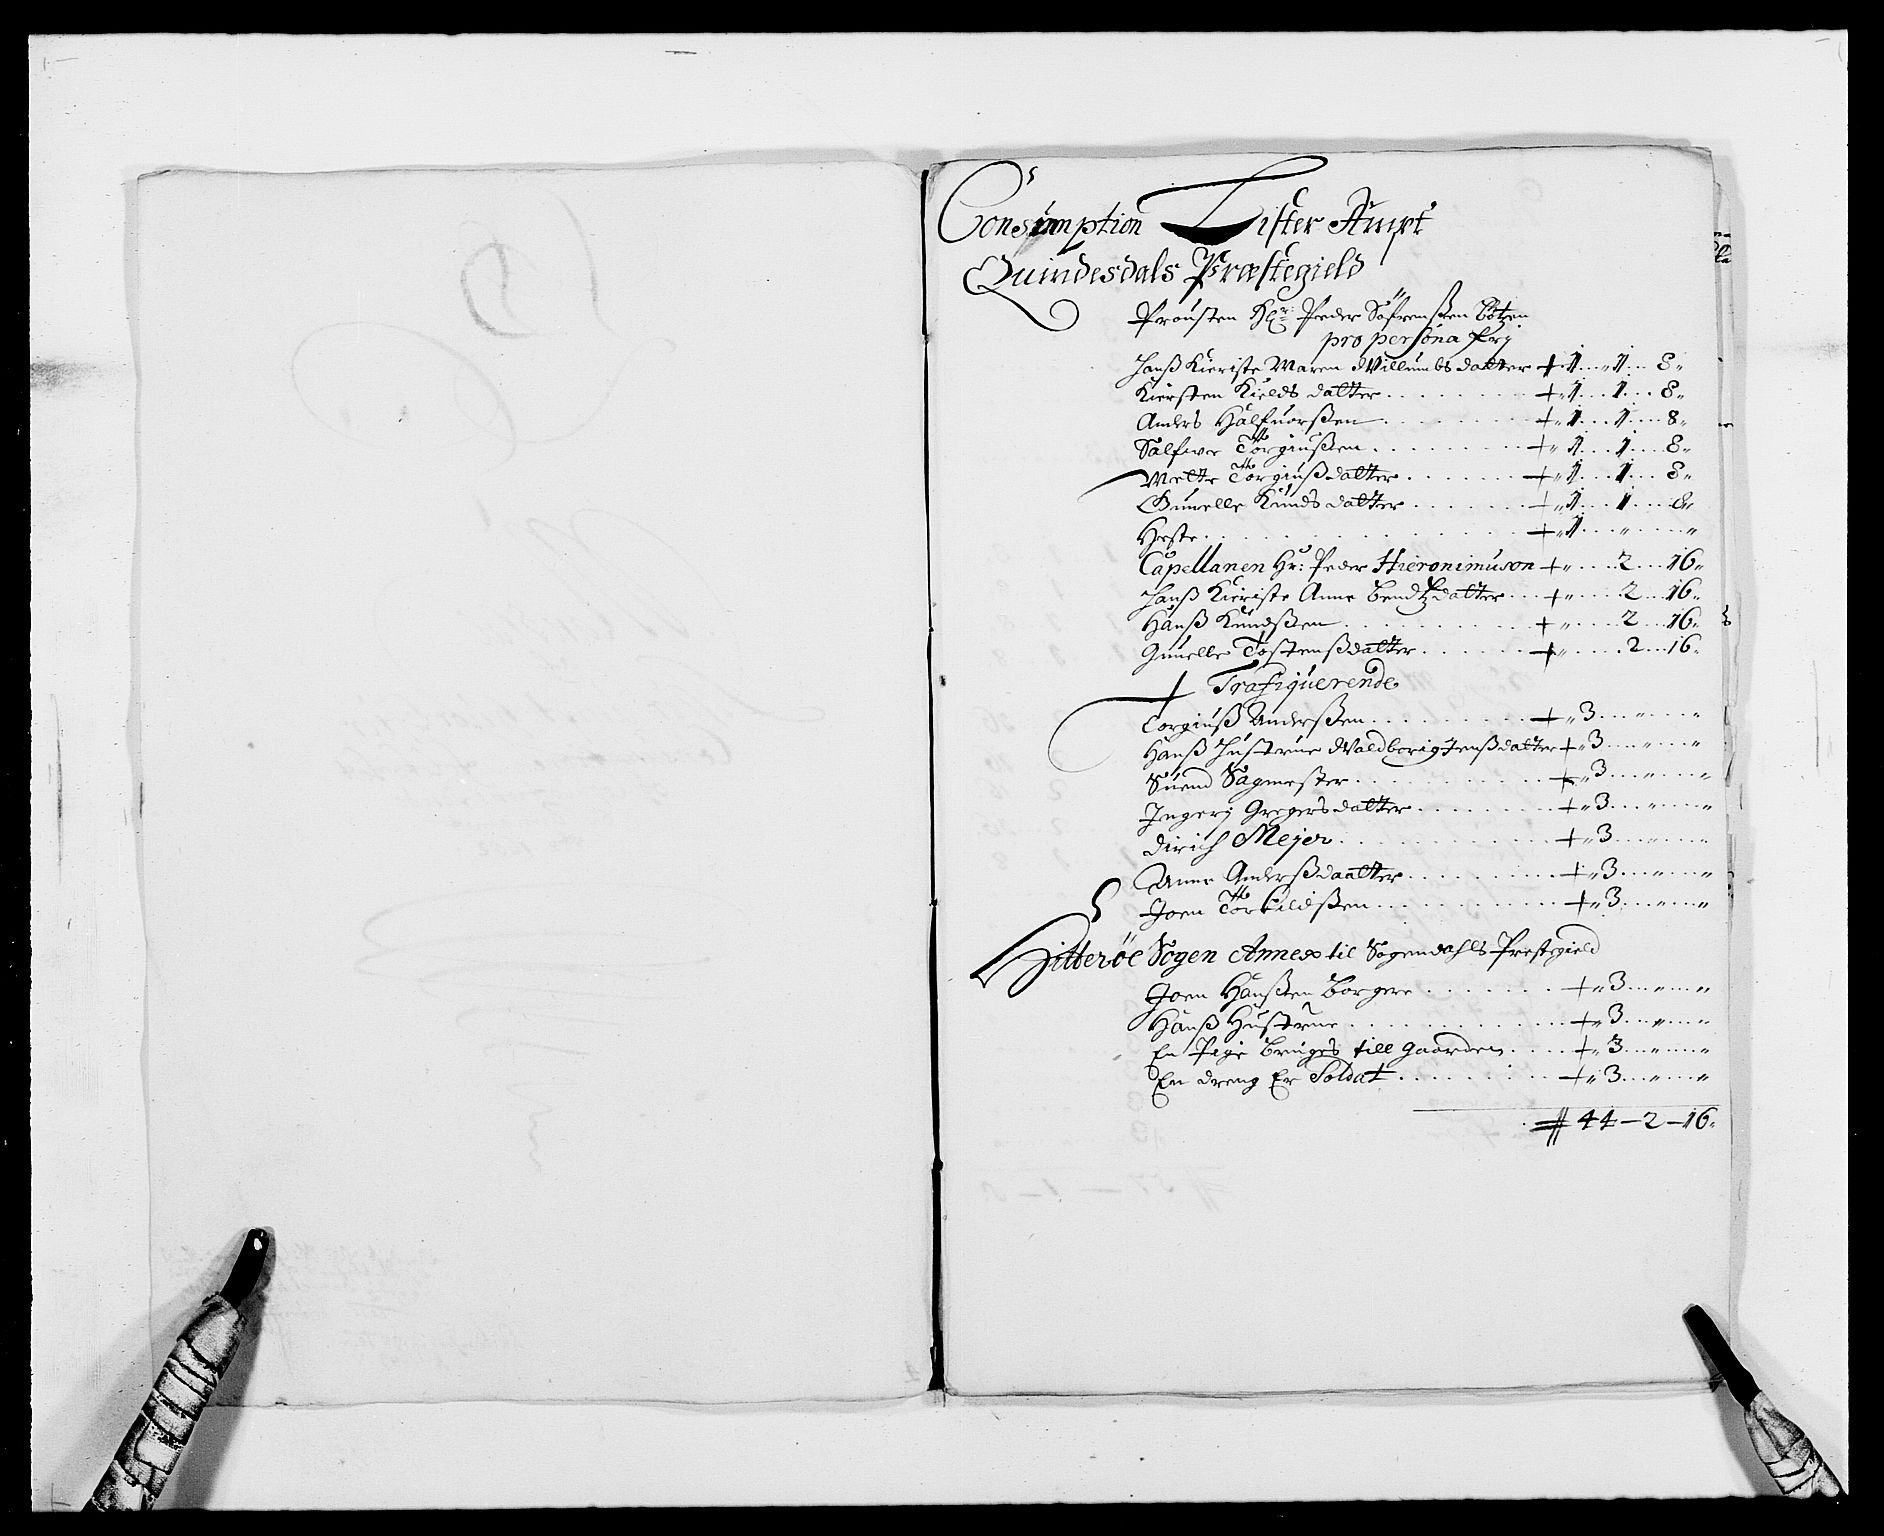 Consumption Lister Ampt
Quindesdals Præstegield
Prousten Hr: Peder Søfrensßen Götzen
pro persona frj
Hanß Kieriste Maren Willumbsdatter + 1 . . 1 . . 8
Kiersten Kieldsdatter + 1 . . 1 . . 8
Anders Halfuorßen + 1 . . 1 . . 8
Salfwe Torgiusßen + 1 . . 1 . . 8
Mette Torgiußdatter + 1 . . 1 . . 8
Gunelle Knudsdatter + 1 . . 1 . . 8
Heste + 1 . . " . . "
Capellanen Hr: Peder Hieronimuson + " . . 2 . . 16
Hanß Kieriste Anne Bendtzdatter + " . . 2 . . 16
Hanß Knudßen + " . . 2 . . 16
Gunelle Tostenßdatter + " . . 2 . . 16
Trafiquerende
Torgiuß Anderßen + 3 . . " . . "
Hanß Hustrue Waldborig Jenßdatter + 3 . . " . . "
Suend Sagmester + 3 . . " . . "
Ingerj Gregersdatter + 3 . . " . . "
Dirich Mejer + 3 . . " . . "
Anne Anderßdaatter + 3 . . " . . "
Joen Torkildßen + 3 . . " . . "
Hitterøe Sogen Annex til Sogendahls Prestegield
Joen Hanßen Borgere + 3 . . " . . "
Hanß Hustrue + 3 . . " . . "
En Pige bruges till gaarden + 3 . . " . . "
En dreng Er Soldat + 3 . . " . . "
44 – 2 – 16